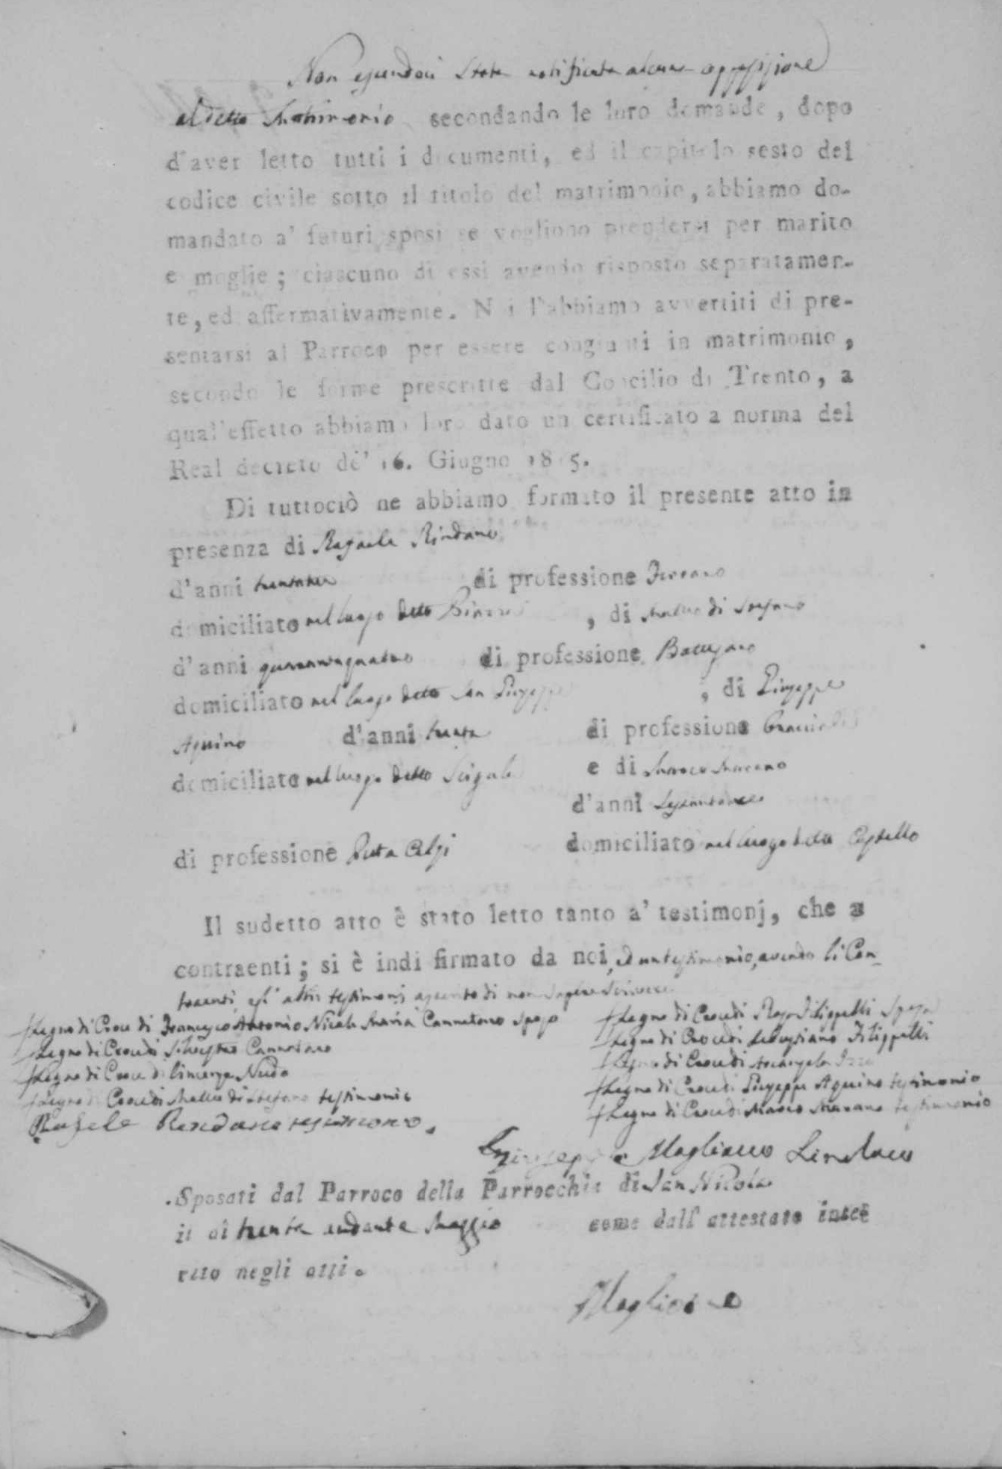 Non essendoci stata notificata alcuna opposizione
al detto Matrimonio secondando le loro domande, dopo
d'aver letto tutti i documenti, ed il capitolo sesto del
codice civile sotto il titolo del matrimonio, abbiamo do-
mandato a' futuri sposi se vogliono prendersi per marito
e moglie; ciascuno di essi avendo risposto separatamen-
te, ed affermativamente. Noi l'abbiamo avvertiti di pre-
sentarsi al Parroco per essere congiunti in matrimonio,
secondo le forme prescritte dal Concilio di Trento, a
qual'effetto abbiamo loro dato un certificato a norma del
Real decreto de' 16. Giugno 1815.
Di tuttociò ne abbiamo formato il presente atto in
presenza di Rafaele Rindano
d'anni di professione
domiciliato nel luogo detto , di Matteo di Stefano
d'anni quarantaquattro di professione
domiciliato nel luogo detto San Giuseppe , di Giuseppe
Aquino d'anni trenta di professione
domiciliato nel luogo detto e di Marco Marano
d'anni
di professione domiciliato nel luogo detto
Il sudetto atto è stato letto tanto a' testimonj, che a
contraenti; si è indi firmato da noi, ed un testimonio, avendo li Con-
traenti, e gl' altri testimonj asserito di non sapere scrivere
Segno di Croce di Francesco Antonio Nicola Maria Cannataro Sposo
Segno di Croce di Rosa Filippelli Sposa
Segno di Croce di Cannataro
Segno di Croce di Filippelli
Segno di Croce di Vincenza
Segno di Croce di Arcangela
Segno di Croce di Matteo di Stefano testimonio
Segno di Croce di Giuseppe Aquino testimonio
Segno di Croce di Marco Marano testimonio
Rafele Rendano testimonio.
Giuseppe Magliano Sindaco
Sposati dal Parroco della Parrocchia di San Nicola
il dì trenta andante Maggio come dall' attestato inse
rito negli atti.
Magliano